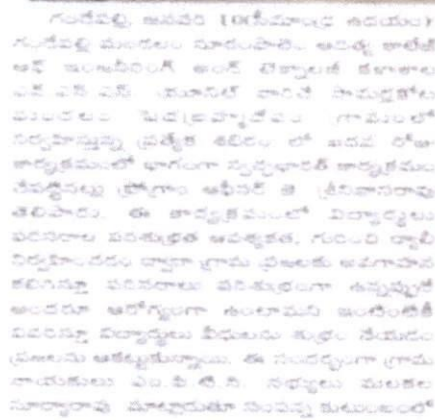 గండేపల్లి, జనవరి 10(సీమాంధ్ర ఉదయం)
గండేపల్లి మండలం సూరంపాలెం ఆదిత్య కాలేజీ
ఆఫ్ ఇంజనీరింగ్ అండ్ టెక్నాలజీ కళాశాల
ఎన్ ఎస్ ఎస్ యూనిట్ వారిచే సామర్లకోట
మండలం గ్రామంలో
నిర్వహిస్తున్న ప్రత్యేక శిబిరం లో ఐదవ రోజు
కార్యక్రమంలో భాగంగా స్వచ్ఛభారత్ కార్యక్రమం
చేపట్టినట్లు ప్రోగ్రాం ఆఫీసర్ జె శ్రీనివాసరావు
తెలిపారు. ఈ కార్యక్రమంలో విద్యార్థులు
పరిసరాల పరిశుభ్రత ఆవశ్యకత, గురించి ర్యాలీ
నిర్వహించడం ద్వారా గ్రామ ప్రజలకు అవగాహన
కల్పిస్తూ పరిసరాలు పరిశుభ్రంగా ఉన్నప్పుడే
అందరూ ఆరోగ్యంగా ఉంటామని ఇంటింటికీ
వివరిస్తూ విద్యార్థులు వీధులను శుభ్రం చేయడం
ప్రజలను ఆకట్టుకున్నాయి. ఈ సందర్భంగా గ్రామ
నాయకులు ఎం.పి.టి.సి. సభ్యులు
సూర్యారావు మాట్లాడుతూ